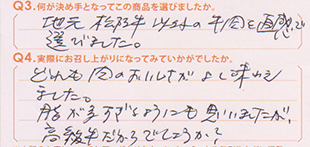 Q3.何が決め手となってこの商品を選びましたか。
地元 松阪牛以外の牛肉を直感で
選びました。
Q4.実際にお召し上がりになってみていかがでしたか。
とても肉のおいしさがよく味わえ
ました。
脂が多すぎるようにも思いましたが、
高級牛だからでしょうか?